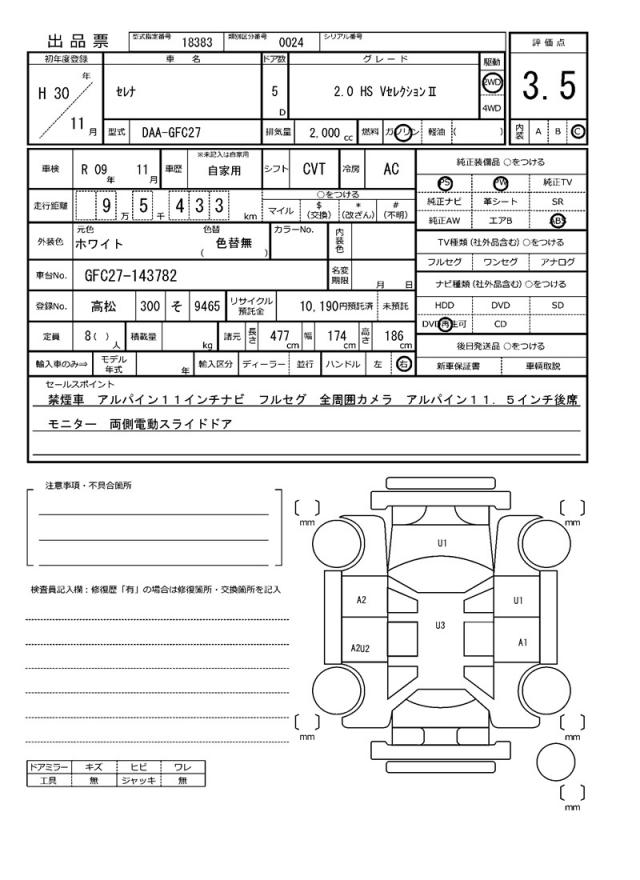 出品票 型式指定番号 18383 類別区分番号 0024 シリアル番号
評価点
3.5
内装 A B C
初年度登録 車名 ドア数 グレード 駆動
H 30 年 11 月
セレナ 5 D 2.0 HS VセレクションⅡ 2WD
4WD
型式 DAA-GFC27 排気量 2,000 cc 燃料 ガソリン 軽油 ( )
車検 R 09 年 11 月 車歴 ※未記入は自家用 自家用 シフト CVT 冷房 AC
走行距離 9 万 5 千 4 3 3 km ○をつける
マイル $(交換) *(改ざん) #(不明)
外装色 元色 ホワイト 色替 ( 色替無 ) カラーNo. 内装色
車台No. GFC27-143782 名変期限 月 日
登録No. 高松 300 そ 9465 リサイクル預託金 10,190円預託済 未預託
定員 8( ) 人 積載量 kg 諸元 長さ 477 cm 幅 174 cm 高さ 186 cm
輸入車のみ⇒ モデル年式 年 輸入区分 ディーラー 並行 ハンドル 左 右
純正装備品 ○をつける
PS PW 純正TV
純正ナビ 革シート SR
純正AW エアB ABS
TV種類(社外品含む)○をつける
フルセグ ワンセグ アナログ
ナビ種類(社外品含む)○をつける
HDD DVD SD
DVD再生可 CD
後日発送品 ○をつける
新車保証書 車輌取説
セールスポイント
禁煙車 アルパイン11インチナビ フルセグ 全周囲カメラ アルパイン11.5インチ後席
モニター 両側電動スライドドア
注意事項・不具合箇所
検査員記入欄:修復歴「有」の場合は修復箇所・交換箇所を記入
ドアミラー キズ ヒビ ワレ
工具 無 ジャッキ 無
mm mm
U1
A2 U1
U3
A2U2 A1
mm mm
mm